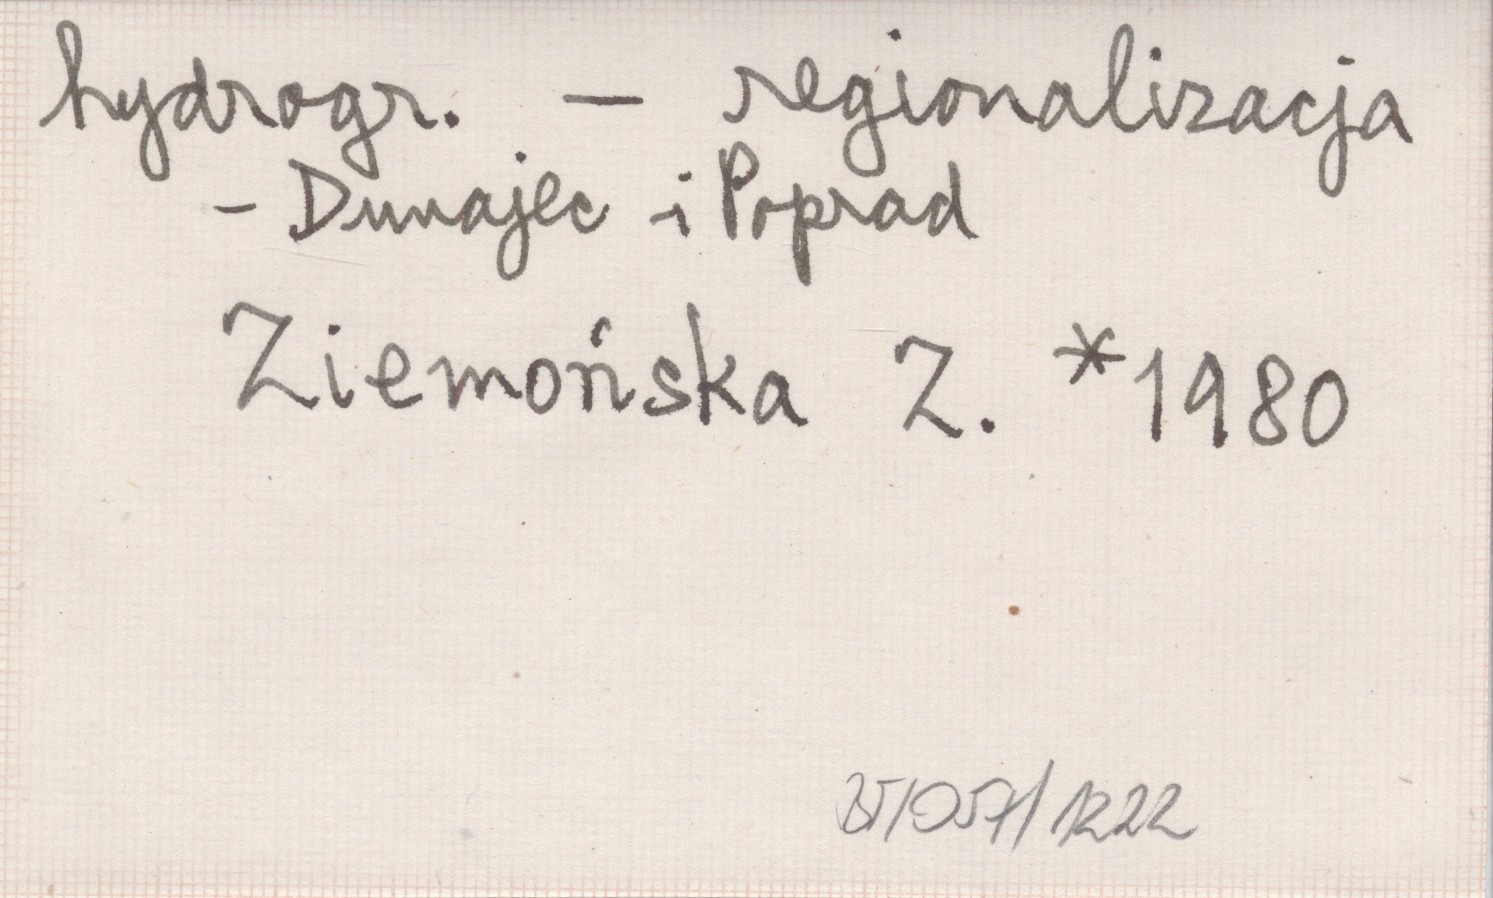 hydrogr. — regionalizacja
- Dunajec i Poprad
Ziemońska Z. *1980
25/057/1222